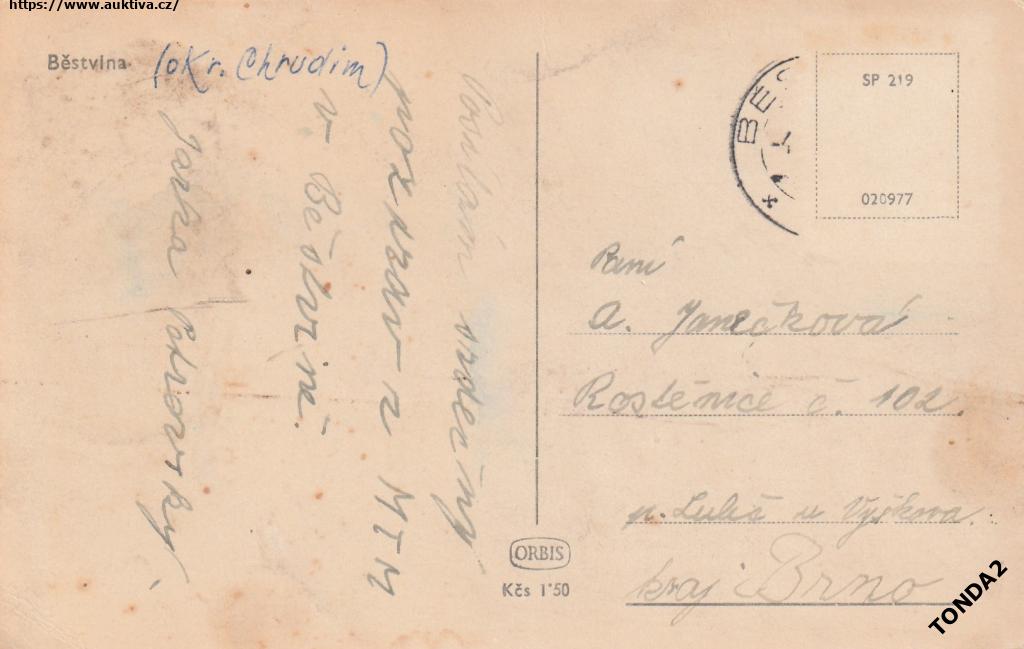 https://www.auktiva.cz/
Běstvina
(okr. Chrudim)
Posílám srdečný
pozdrav z MTM
v Běstvině.
Jarka Petrovský
BĚS
SP 219
020977
Paní
A. Janečková
Rostěnice č. 102.
p. Luleč u Vyškova.
kraj Brno
ORBIS
Kčs 1'50
TONDA2